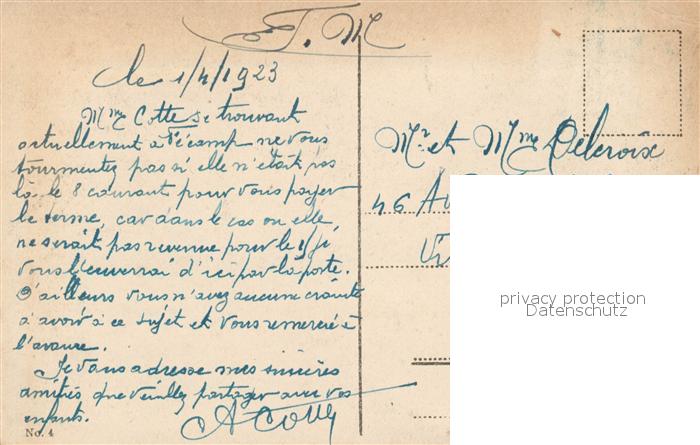 F. M
le 1/4/1923
Mme Cotte se trouvant
actuellement à Fécamp ne vous
tourmentez pas si elle n'était pas
là le 8 courant pour vous payer
le terme, car dans le cas ou elle
ne serait pas revenue pour le 8 je
vous l'enverrai d'ici par la poste.
D'ailleurs vous n'avez aucune crainte
à avoir à ce sujet et vous remercie à
l'avance.
Je vous adresse mes sincères
amitiés que veuillez partager avec vos
enfants.
A Cotte
No. 4
Mr et Mme Delcroix
46 Av
privacy protection
Datenschutz